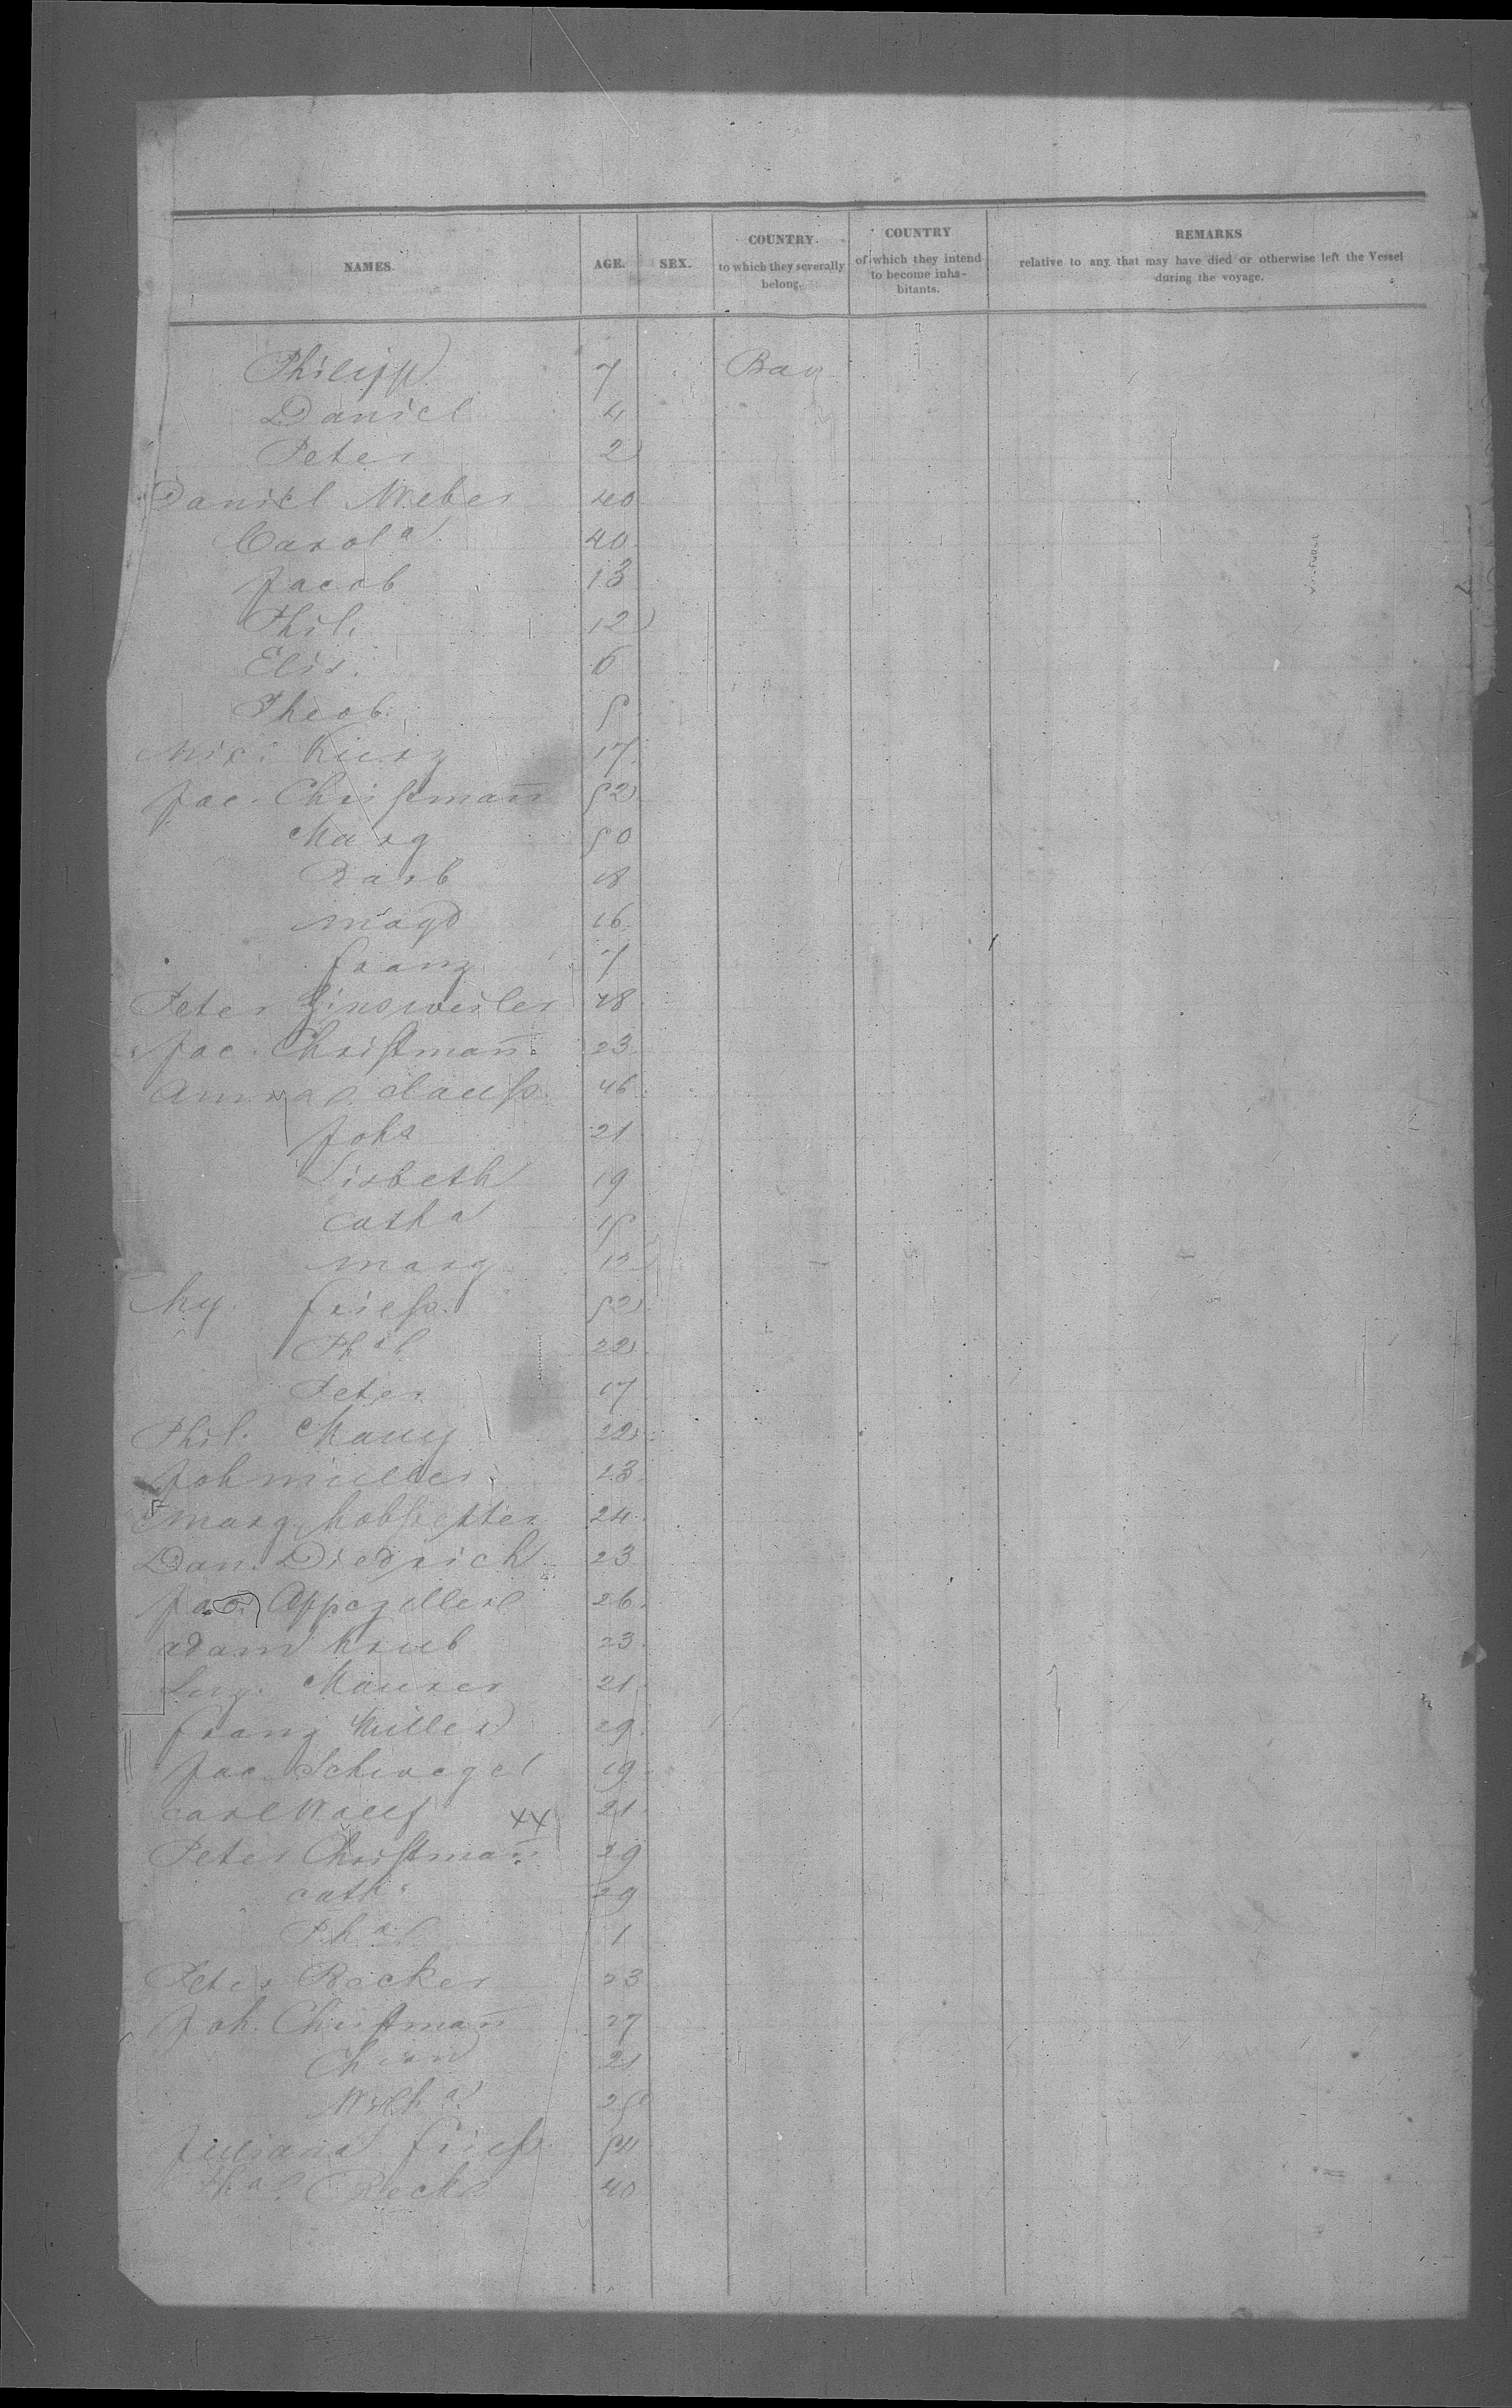 NAMES. AGE. SEX. COUNTRY to which they severally belong. COUNTRY of which they intend to become inhabitants. REMARKS relative to any that may have died or otherwise left the Vessel during the voyage.
Philipp 7 Bay
Daniel 4
Peter 2
Daniel Weber 40
Carola 40
Jacob 13
Phil. 12
Elis. 6
Theob. 5
Kurz 17
Jac. Christman̄ 52
Marg 50
Barb 18
Magd 16
Franz 7
Peter Ginsweiler 48
Jac. Christman̄ 23
Clauss 46
Joha 21
Lisbeth 19
Catha 15
Marg 12
Friess. 52
Phil 22
Peter 17
Phil. Mauy 22
Joh Müller 23
Marg. 24
Dan. Diedrich 23
Jac. 26
Adam Krub 23
Maurer 21
Franz Müller 29
Jac. Schwegel 19
Carl Wolff XX 21
Peter Christman̄ 29
Cath. 29
Phil 1
Peter Becker 23
Joh. Christman̄ 27
21
Wilha 25
Juliana Friess. 54
40